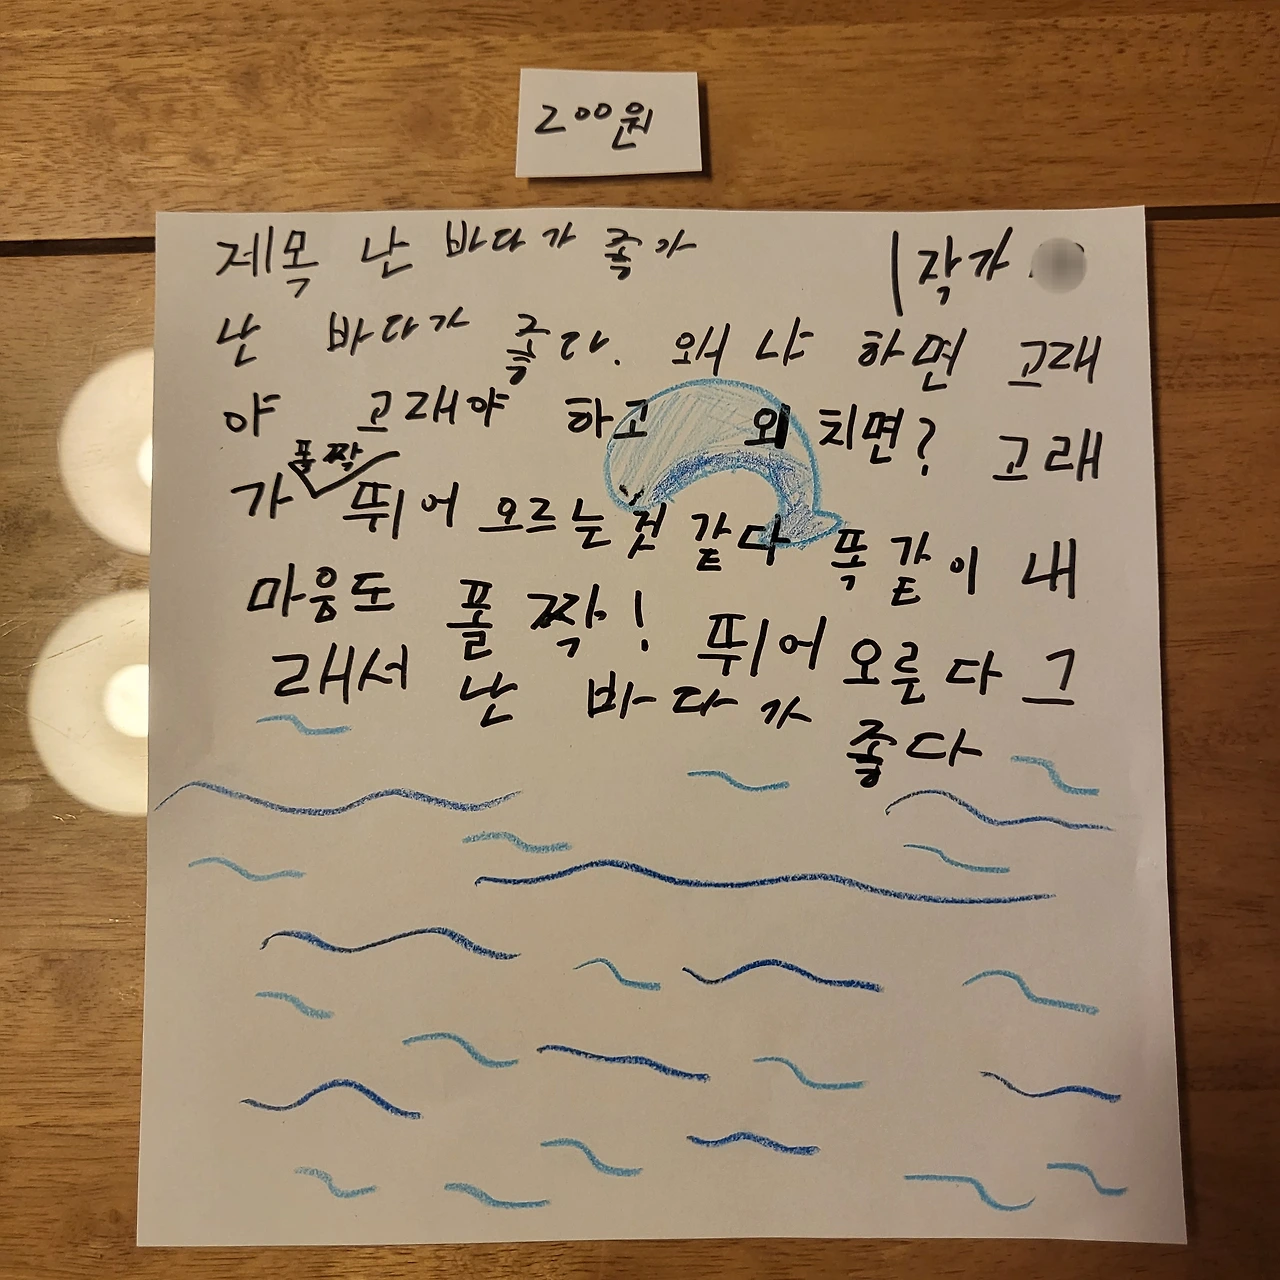 200원
제목 난 바다가 좋가 |작가
난 바다가 좋다. 왜냐 하면 고래
야 고래야 하고 외치면? 고래
가 폴짝 뛰어 오르는것 같다 똑같이 내
마음도 폴짝! 뛰어 오른다 그
래서 난 바다가
좋다